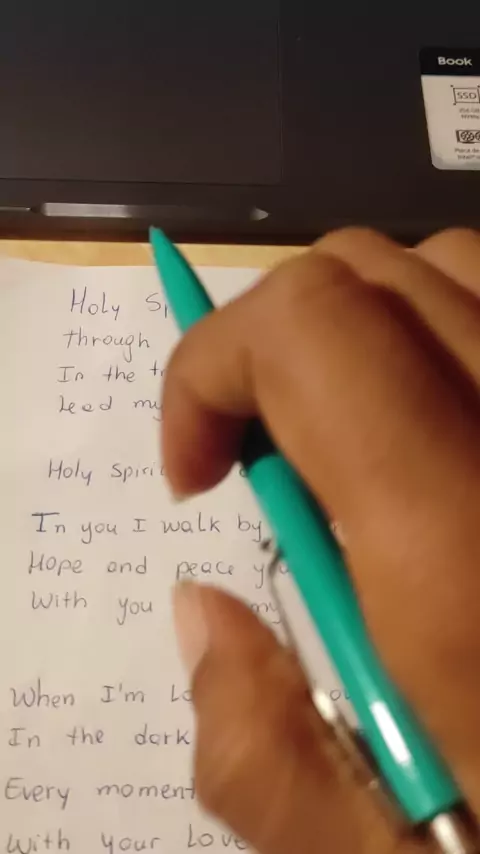 Book
SSD
Holy
through
In the
Lead my
Holy Spirit
In you I walk by
Hope and peace
With you my
When I'm
In the dark
Every moment
With your Love